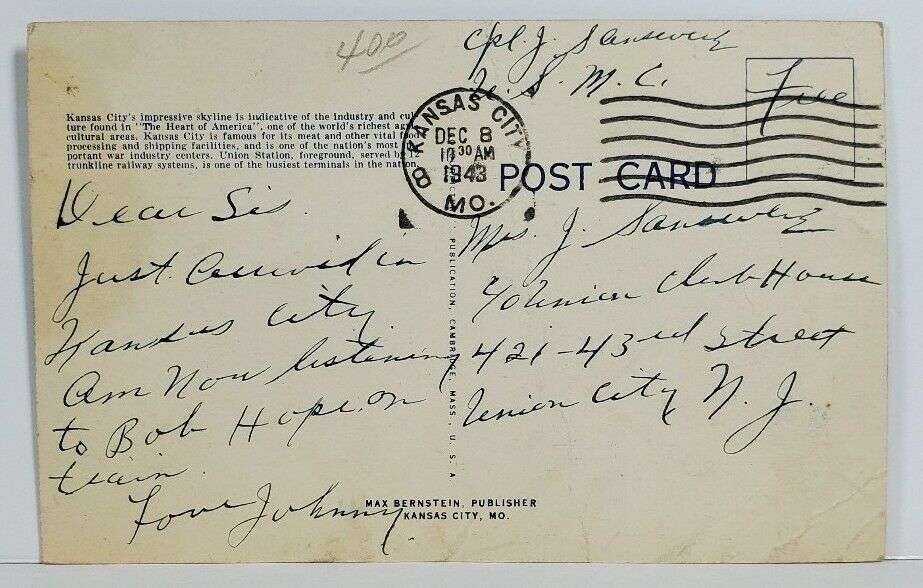 400
Cpl. J. Sanseverz
U. S. M. C.
Free
Kansas City's impressive skyline is indicative of the industry and cul-
ture found in "The Heart of America", one of the world's richest agri-
cultural areas. Kansas City is famous for its meat and other vital food
processing and shipping facilities, and is one of the nation's most im-
portant war industry centers. Union Station, foreground, served by 12
trunkline railway systems, is one of the busiest terminals in the nation.
KANSAS CITY
DEC 8
10 30 AM
1943
MO.
8
POST CARD
Dear Sis.
Just arrived in
Kansas City
am now listening
to Bob Hope, on
train.
Love Johnny.
Mrs J. Sanseverz
c/o Union Club House
421-43rd Street
Union City N. J.
PUBLICATION, CAMBRIDGE, MASS., U. S. A
MAX BERNSTEIN, PUBLISHER
KANSAS CITY, MO.